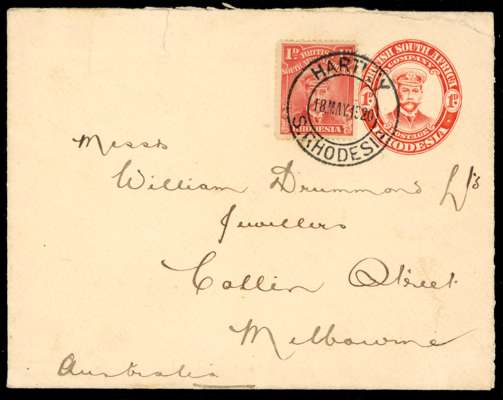 1D BRITISH 1D
SOUTH AFRICA
RHODESIA
HARTLEY
18 MAY 1920
S. RHODESIA
BRITISH SOUTH AFRICA
COMPANY
1D 1D
POSTAGE
RHODESIA
Messrs
William Drummond
Jewellers
Collin Street
Melbourne
Australia